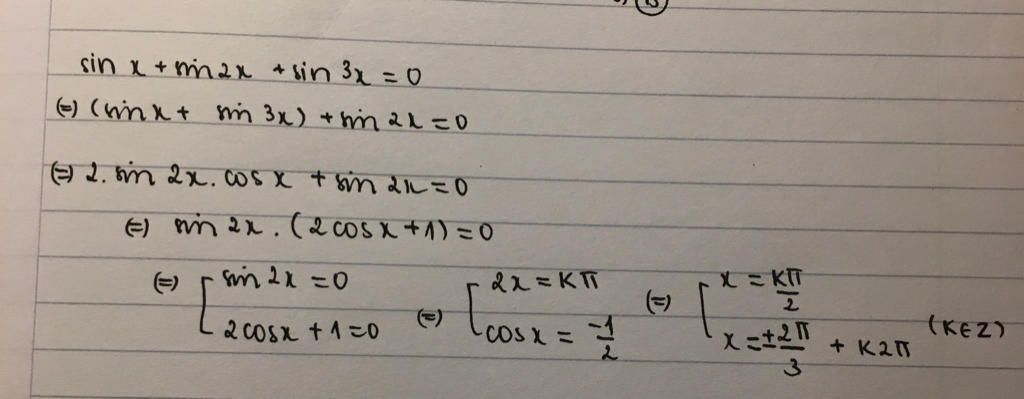 sin x + sin 2x + sin 3x = 0
(=) (sin x + sin 3x) + sin 2x = 0
(=) 2. sin 2x. cos x + sin 2x = 0
(=) sin 2x . (2 cos x + 1) = 0
(=) [ sin 2x = 0 (=) [ 2x = Kπ (=) [ x = Kπ/2
2 cos x + 1 = 0 cos x = -1/2 x = ±2π/3 + K2π (K∈Z)